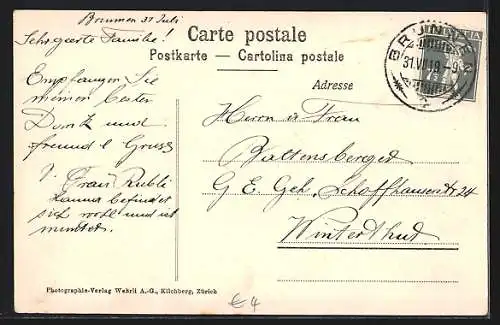 Brunnen 31 Juli
Sehr geerte Familie!
Empfangen Sie
meinen besten
Dank und
freundl Gruss
v. Frau Rubli
Hanna befindet
sich wohl und ist
munter.
Carte postale
Postkarte — Cartolina postale
Adresse
BRUNNEN
31.VII.19.-9
HELVETIA
7½
Herrn u Frau
Baltensberger
G. E. Geh. Schaffhauserstr 24
Winterthur
Photographie-Verlag Wehrli A.-G., Kilchberg, Zürich
€ 4